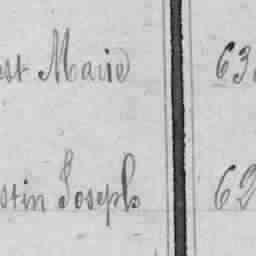 est Marie 63
stin Joseph 62